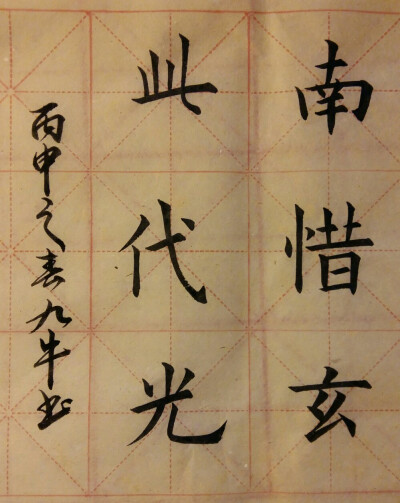 南惜玄
此代光
丙申之春九牛书